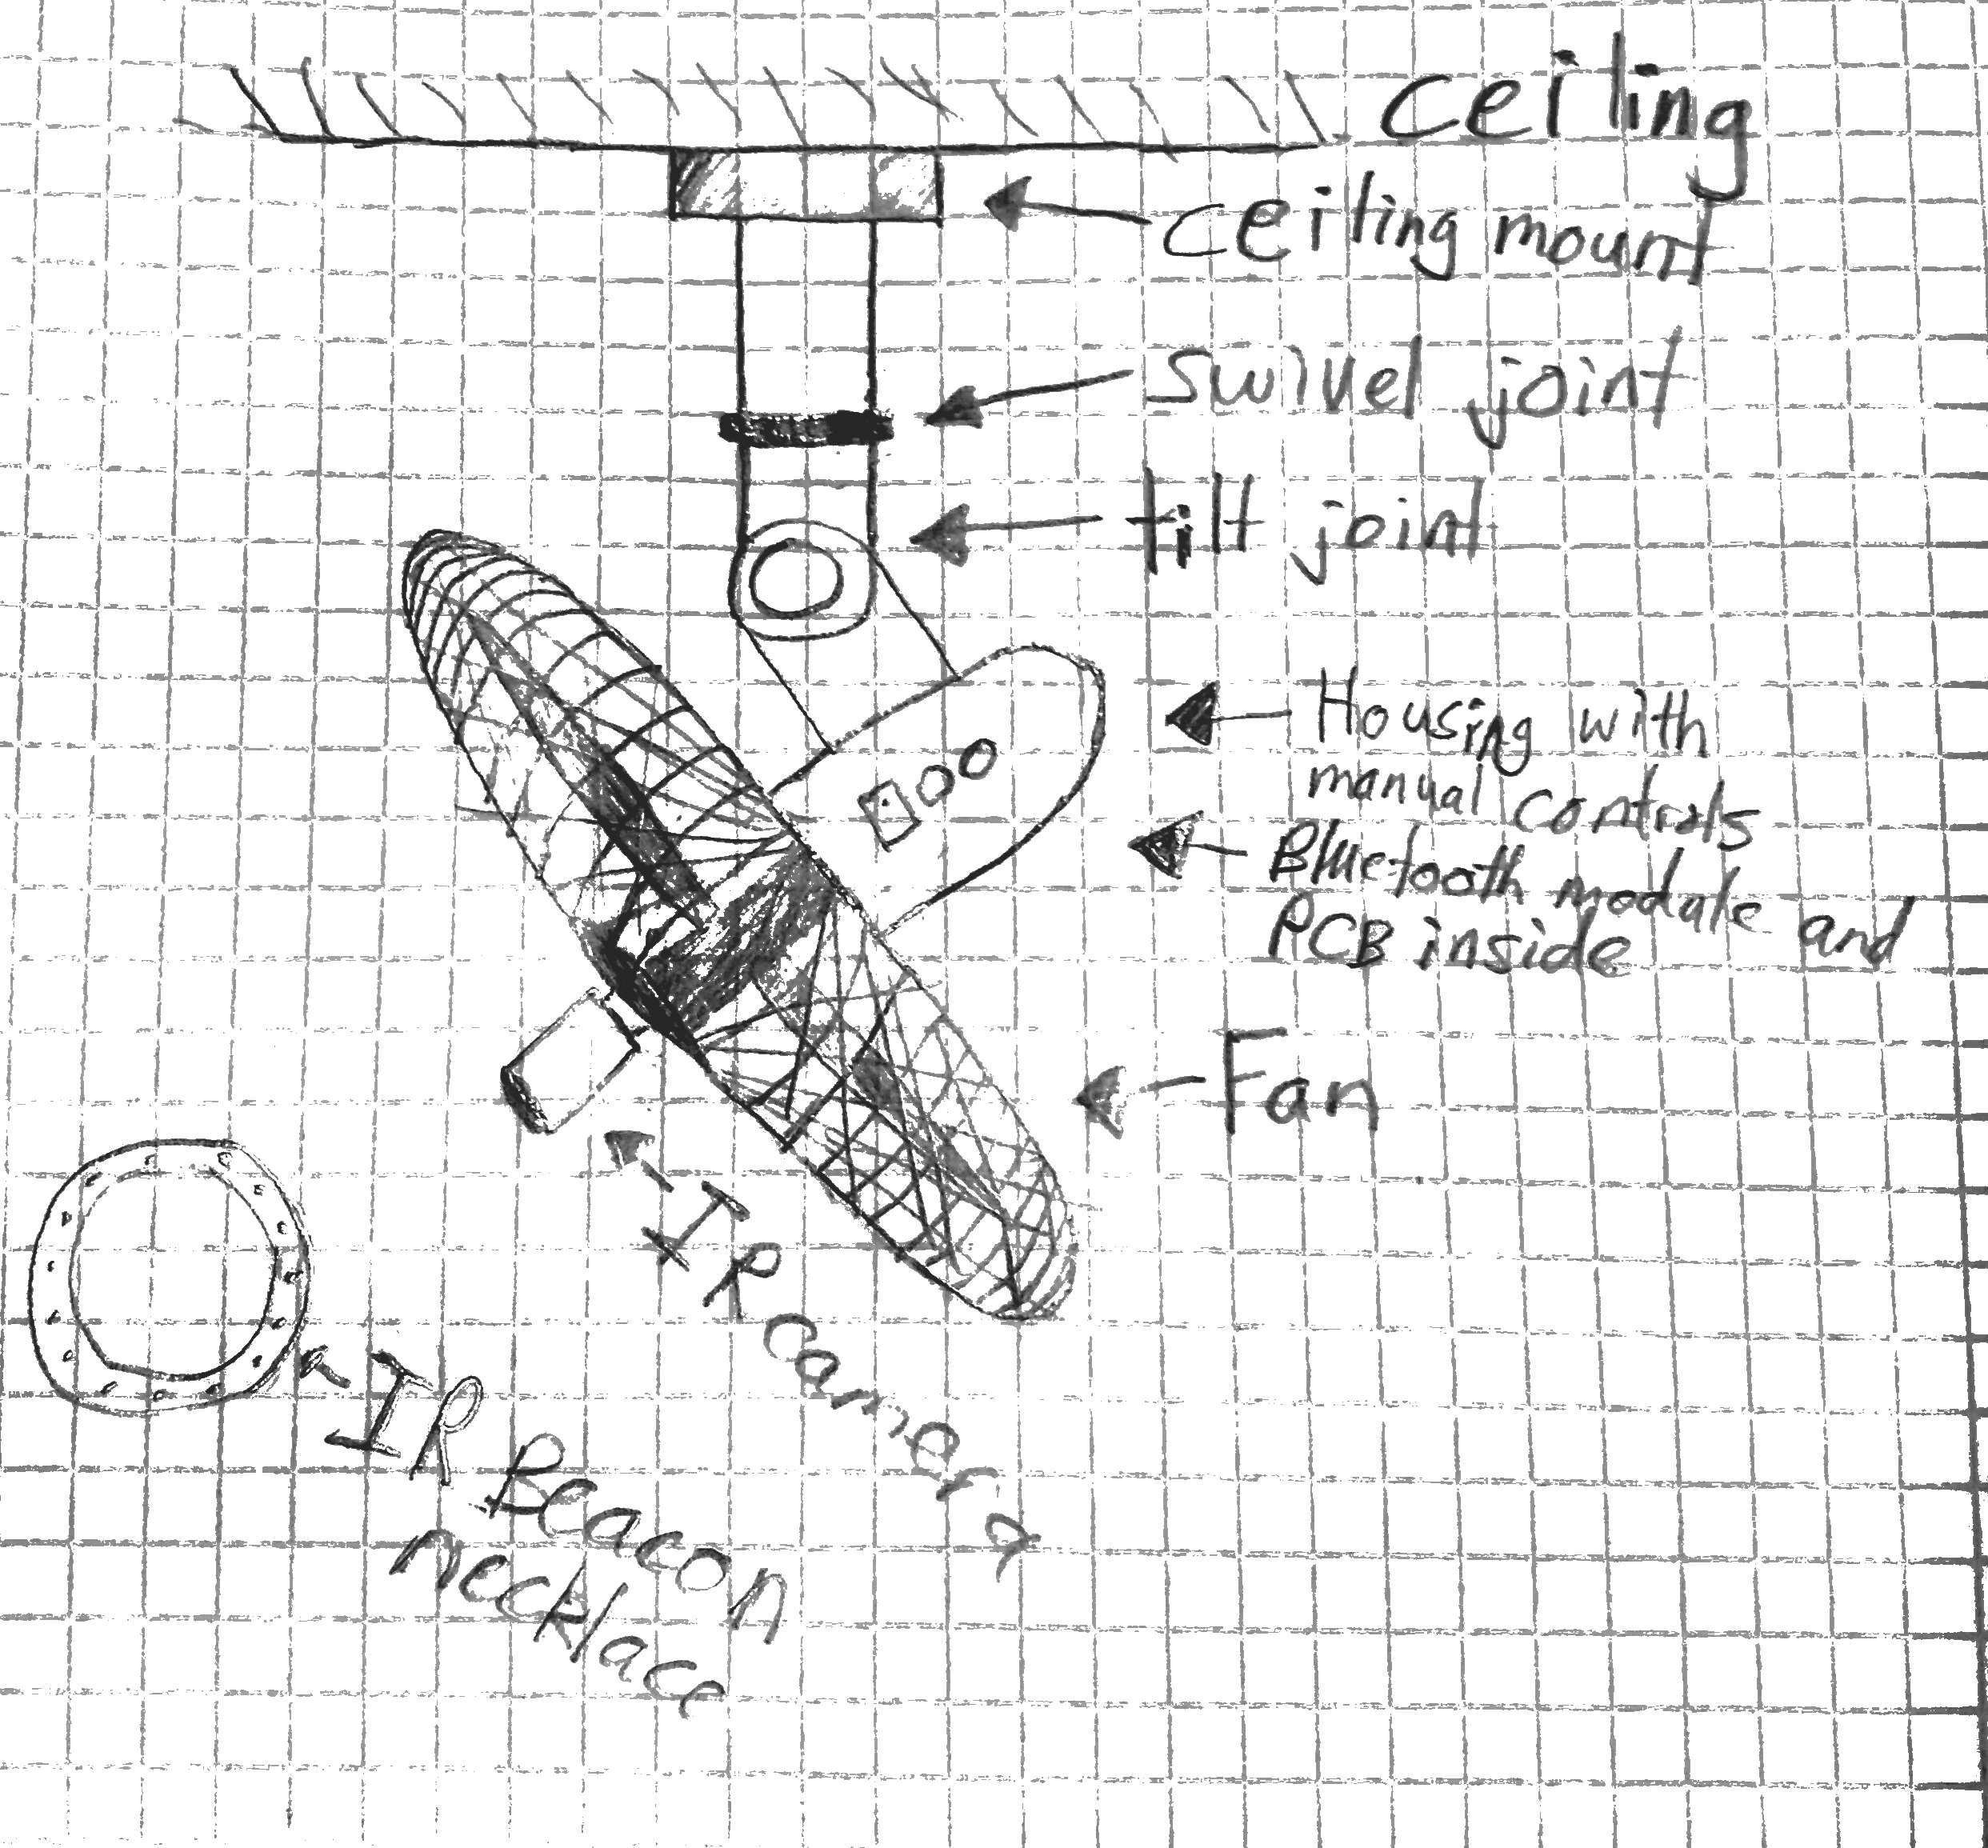 ceiling
ceiling mount
Swivel joint
tilt joint
Housing with
manual controls
Bluetooth module and
PCB inside
Fan
IR camera
IR Beacon
necklace